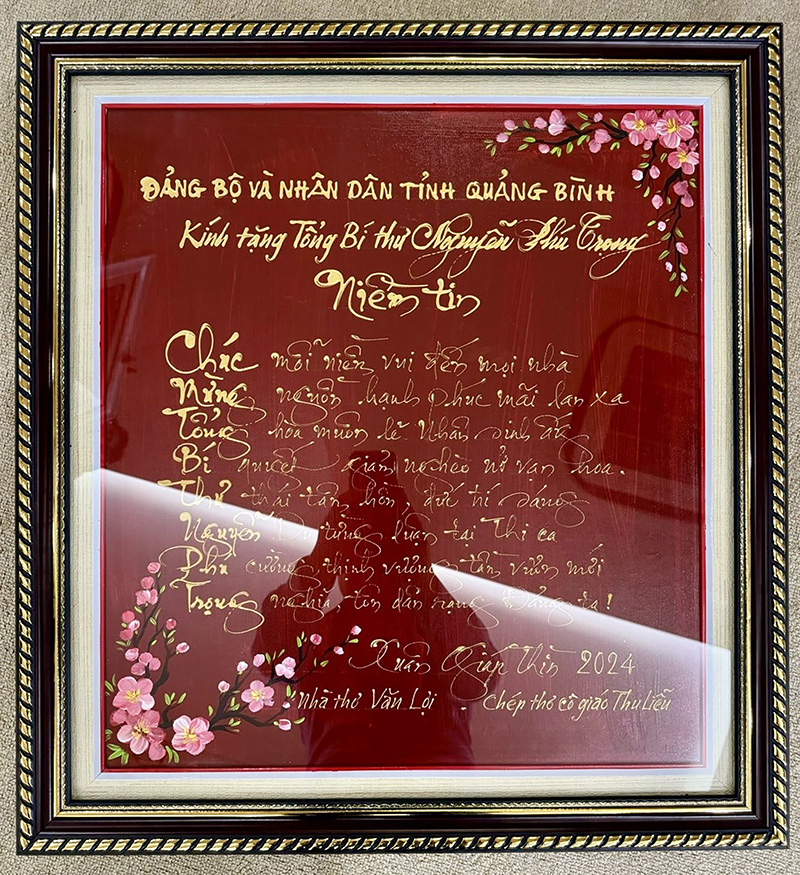 ĐẢNG BỘ VÀ NHÂN DÂN TỈNH QUẢNG BÌNH
Kính tặng Tổng Bí thư Nguyễn Phú Trọng
Niềm tin
Chúc mỗi niềm vui đến mọi nhà
Mừng nguồn hạnh phúc mãi lan xa
Tổng hòa muôn lẽ Nhân sinh ấy
Bí quyết giản nghèo nở vạn hoa.
Thư thái tâm hồn đức trí sáng
Nguyễn Du từng luận tài Thi ca
Phú cường, thịnh vượng tầm vươn mới
Trọng nghĩa, tin dân rạng Đảng ta!
Xuân Giáp Thìn 2024
Nhà thơ Văn Lợi - Chép thơ cô giáo Thu Liễu